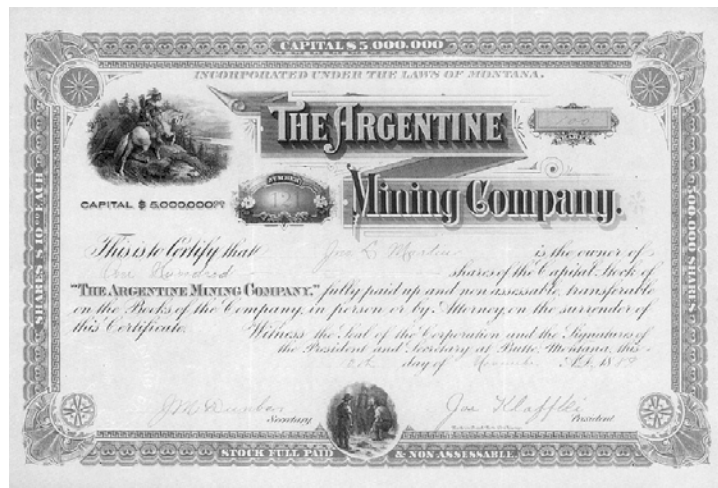 CAPITAL $ 5 000.000
INCORPORATED UNDER THE LAWS OF MONTANA.
THE ARGENTINE
100
Mining Company.
NUMBER
12
CAPITAL $ 5.000.000
SHARES $ 10 EACH
SHARES 500.000
This is to Certify that Jas is the owner of
One Hundred shares of the Capital Stock of
"THE ARGENTINE MINING COMPANY," fully paid up and non assessable, transferable
on the Books of the Company, in person or by Attorney, on the surrender of
this Certificate. Witness the Seal of the Corporation and the Signatures of
the President and Secretary at Butte, Montana, this
day of A.D. 18
J M Dunbar Secretary
President
STOCK FULL PAID & NON ASSESSABLE.